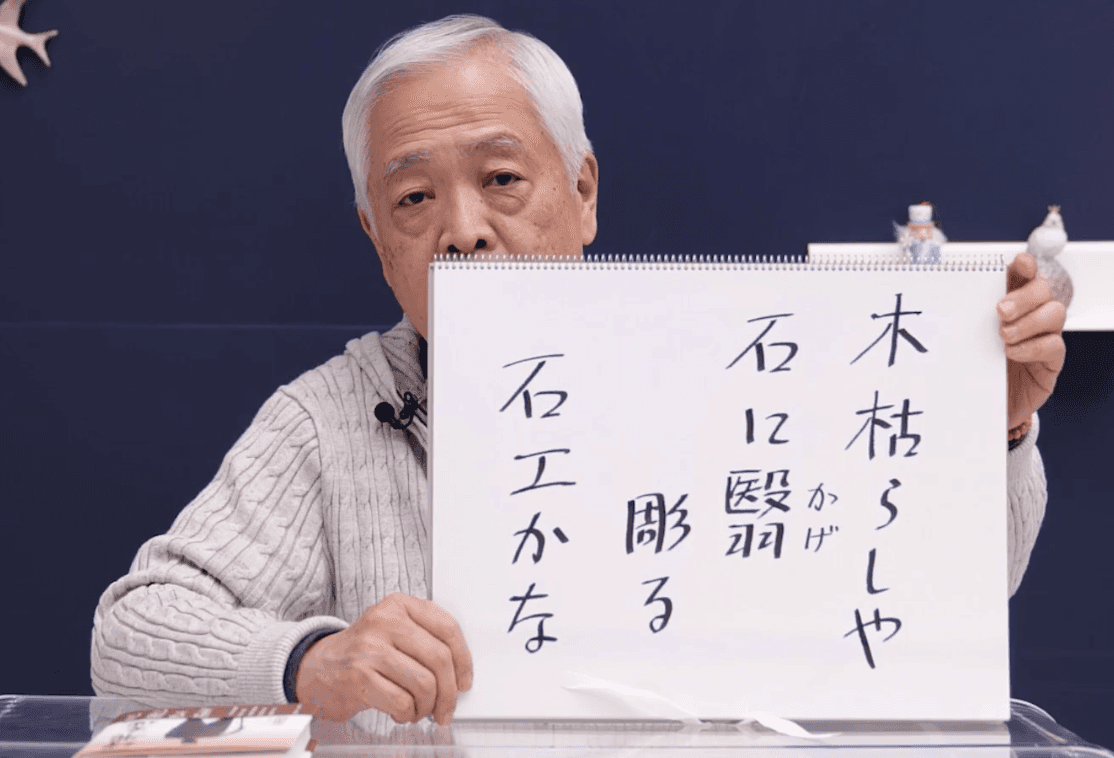 木枯らしや
石に翳
かげ
彫る
石工かな